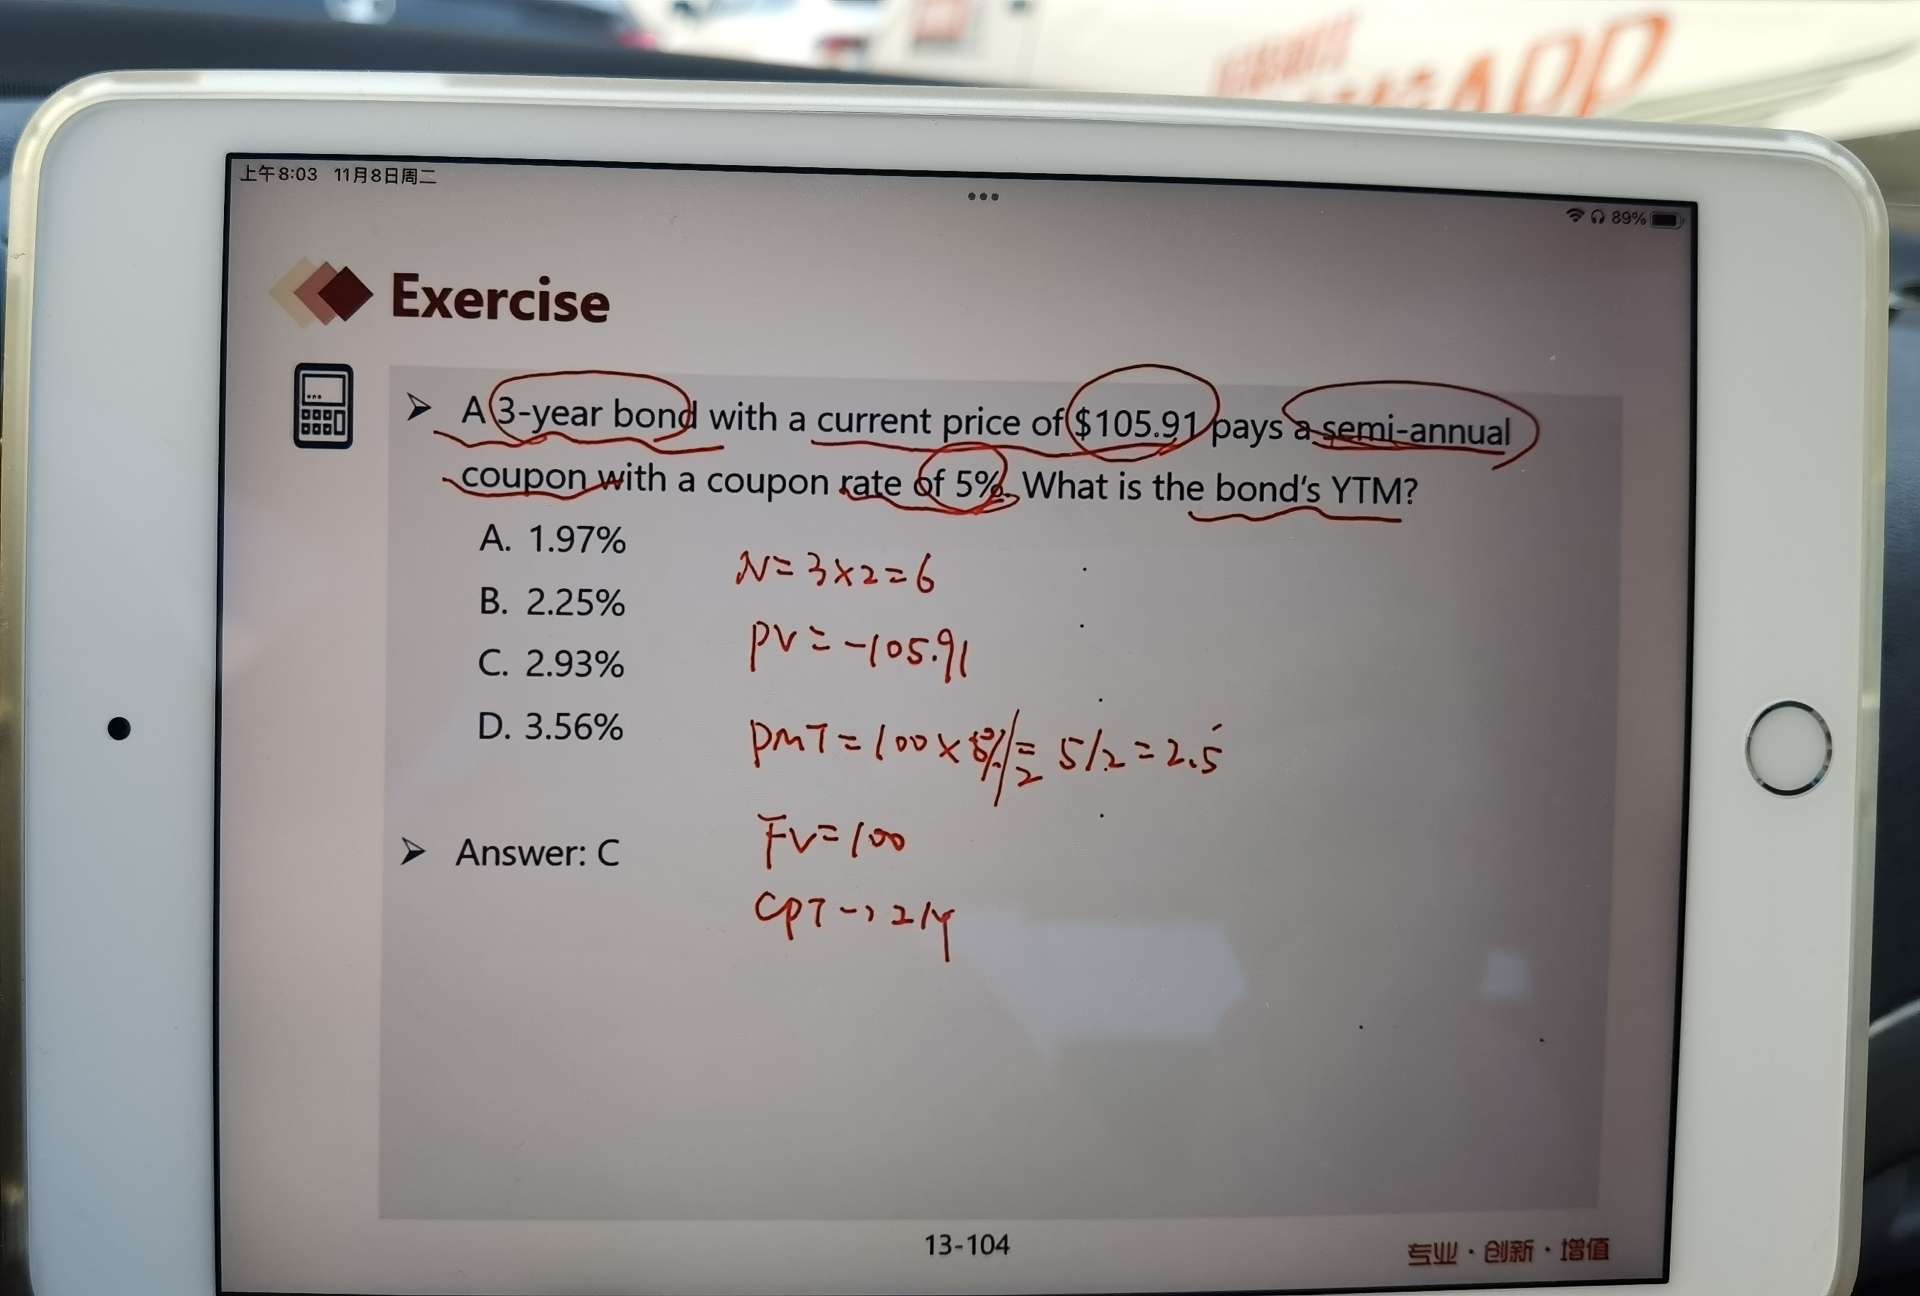 上午8:03 11月8日周二
89%
Exercise
A 3-year bond with a current price of $105.91 pays a semi-annual
coupon with a coupon rate of 5%. What is the bond's YTM?
A. 1.97%
B. 2.25%
C. 2.93%
D. 3.56%
N=3×2=6
PV=-105.91
PMT=100×5%/2=5/2=2.5
FV=100
CPT→I/Y
Answer: C
13-104
专业·创新·增值